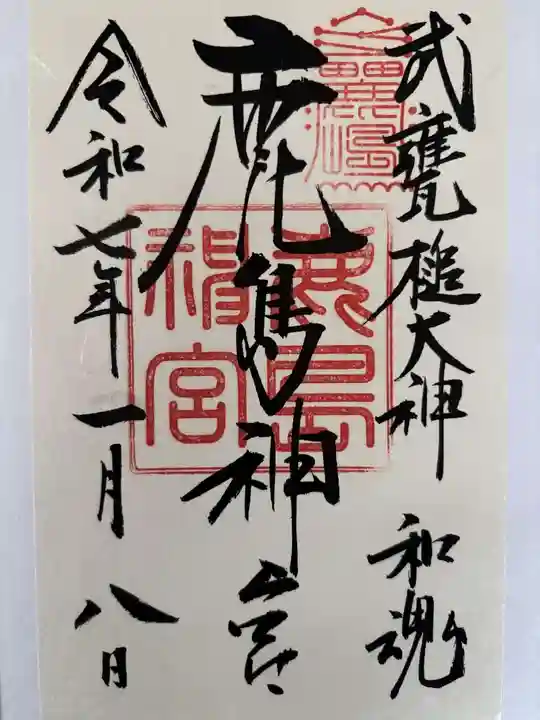 武甕槌大神 和魂
鹿島神宮
鹿島神宮
令和七年一月八日